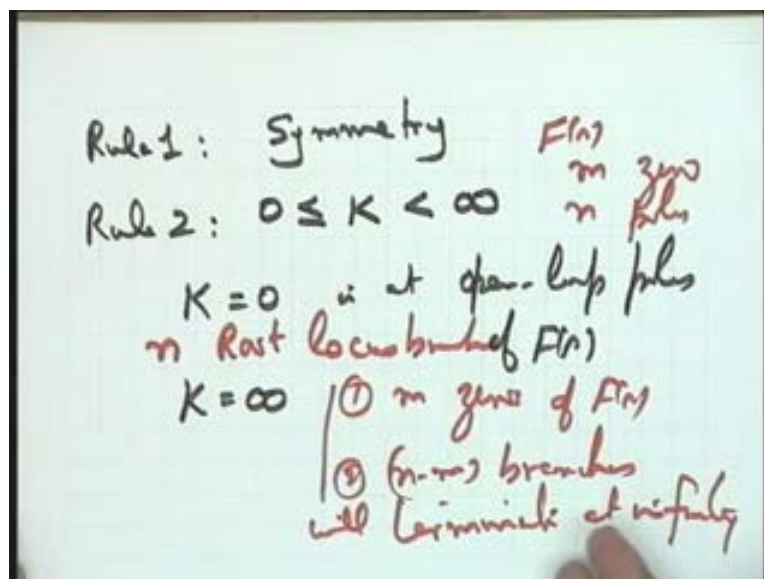 Rule 1: Symmetry F(s)
m zero
Rule 2: 0 ≤ K < ∞ n poles
K = 0 is at open-loop poles
n Root locus branch of F(s)
K = ∞ ① m zeros of F(s)
② (n-m) branches
will terminate at infinity